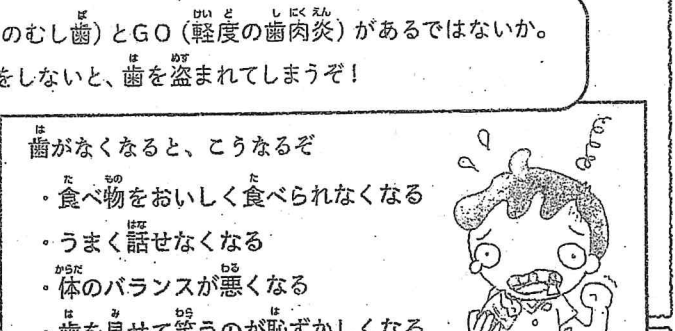 のむし歯)とGO(軽度の歯肉炎)があるではないか。
をしないと、歯を盗まれてしまうぞ!
歯がなくなると、こうなるぞ
・食べ物をおいしく食べられなくなる
・うまく話せなくなる
・体のバランスが悪くなる
・歯を見せて笑うのが恥ずかしくなる